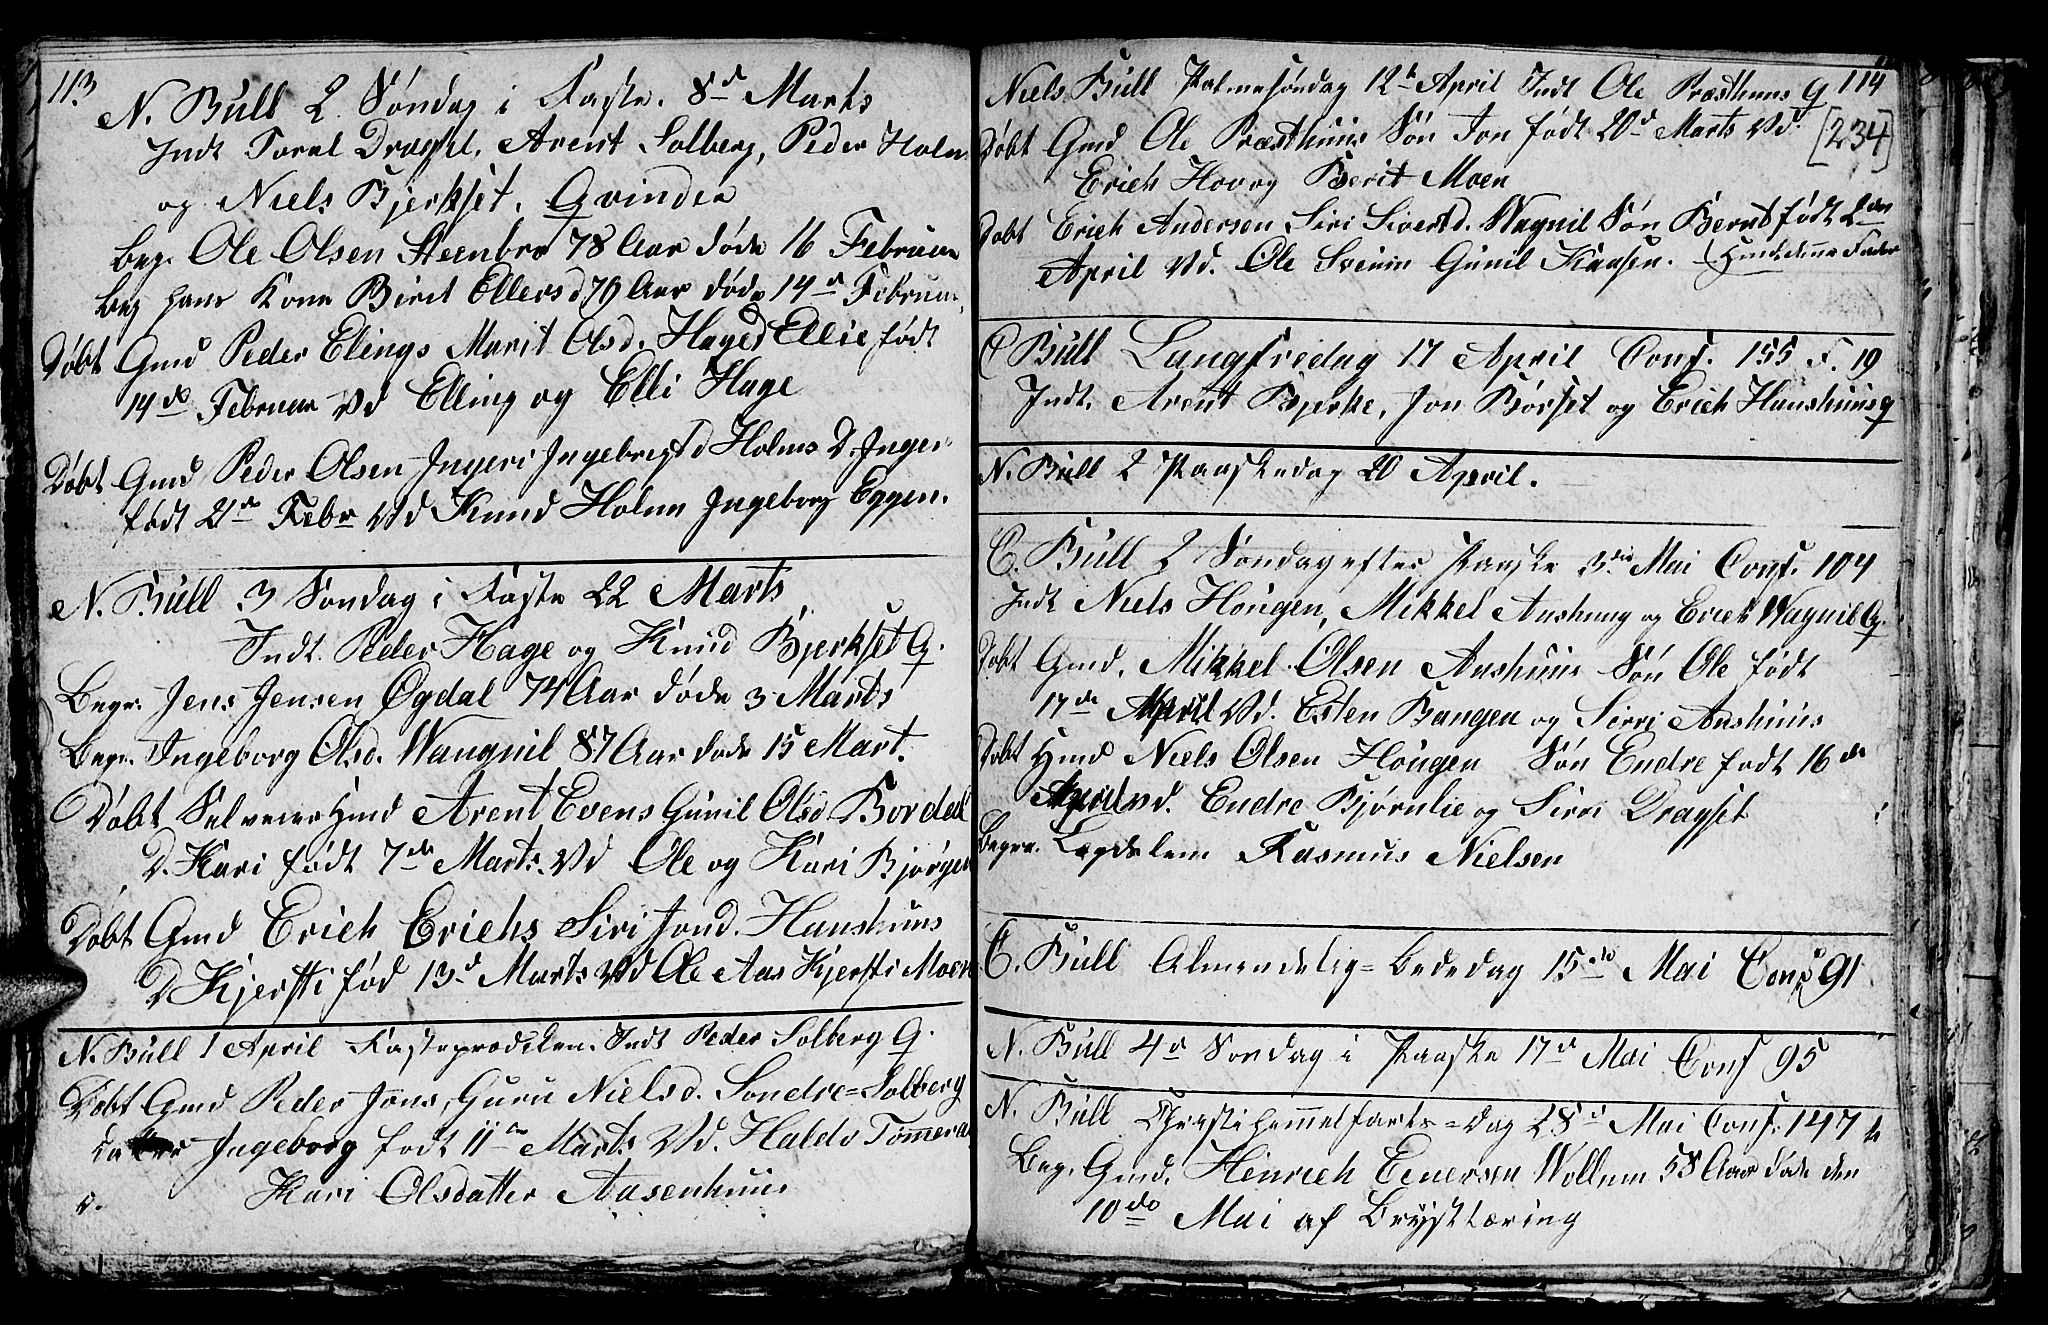 113
N. Bull 2 Søndag i Faste. 8d Marts
Indt Toral Dragset, Arent Solberg, Peder Holm
og Niels Bjerkset. Qvinder
Beg. Ole Olsen Steenbro 78 Aar døde 16 Februar
Beg hans Kone Birit Ellersd 79 Aar døde 14d Februar
Døbt Gmd Peder Elings Marit Olsd. Haged Ellie født
14de Februar Vd Elling og Elli Hage
Døbt Gmd Peder Olsen Ingeri Ingebrigtsd Holms D. Inger
født 21de Febr Vd Knud Holm Ingeborg Eggen.
N. Bull 3 Søndag i Faste 22 Marts
Indt. Peder Hage og Knud Bjerkset Q.
Begr. Jens Jensen Øgdal 74 Aar døde 3 Marts
Begr. Ingeborg Olsd. Wangnil 87 Aar døde 15 Mart.
Døbt Selveier Hmd Arent Evens Gunil Olsd Bordal
D. Kari født 7de Marts. Vd Ole og Kari Bjørgen
Døbt Gmd Erich Erichs Siri Jond. Hanshuus
D Kjersti fød 13d Marts Vd Ole Aas Kjersti Moen
N. Bull 1 April Fasteprædiken. Indt Peder Solberg Q.
Døbt Gmd Peder Jons, Guru Nielsd. Søndre=Solberg
Ingeborg født 11te Marts Vd. Haldo Tømmeraa
Kari Olsdatter Aasenhuus
Niels Bull Palmesøndag 12te April Indt Ole Præsthuus Q 114
[234]
Døbt Gmd Ole Præsthuus Søn Jon født 20de Marts Vd.
Erich Hov og Berit Moen
Døbt Erich Andersen Siri Siversd. Wagnil Søn Bernt født 2den
April Vd. Ole Svinin Gunil Kaasen.
C Bull Langfredag 17 April Conf. 155 F. 19
Indt. Arent Bjerke, Jon Børset og Erich Hanshuus Q
N. Bull 2 Paaskedag 20 April.
C. Bull 2 Søndag efter Paaske 3die Mai Conf. 104
Indt Niels Hougen, Mikkel Aushuug og Erich Wagnil Q.
Døbt Gmd. Mikkel Olsen Aushuus Søn Ole født
17de April Vd. Esten Bangen og Sirri Aushuus
Døbt Hmd Niels Olsen Hougen Søn Endre født 16de
April vd. Endre Bjørnlie og Sirri Dragset
Begra. Lægdslem Rasmus Nielsen
C. Bull Almindelig=Bededag 15de Mai Conf 91
N. Bull 4d Søndag i Paaske 17d Mai Conf 95
N. Bull Christi Hemmelfarts=Dag 28d Mai Conf. 147
Beg. Gmd. Hinrich Einersen Wollum 58 Aar døde den
10de Mai af Brysttæring